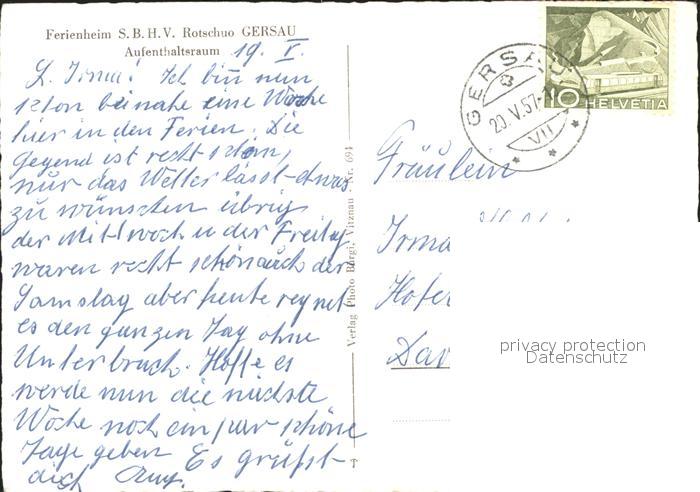 Ferienheim S.B.H.V. Rotschuo GERSAU
Aufenthaltsraum 19. V.
L. Irma! Ich bin nun
schon beinahe eine Woche
hier in den Ferien. Die
Gegend ist recht schön,
nur das Wetter lässt etwas
zu wünschen übrig
der Mittwoch u der Freitag
waren recht schön auch der
Samstag aber heute regnet
es den ganzen Tag ohne
Unterbruch. Hoffe es
werde nun die nächste
Woche noch ein paar schöne
Tage geben. Es grüsst
dich
Verlag Photo Bürgi, Vitznau - Nr. 694
GERSAU
20.V.57
VII
10 HELVETIA
Fräulein
Irma
Hofer
Dav
privacy protection
Datenschutz